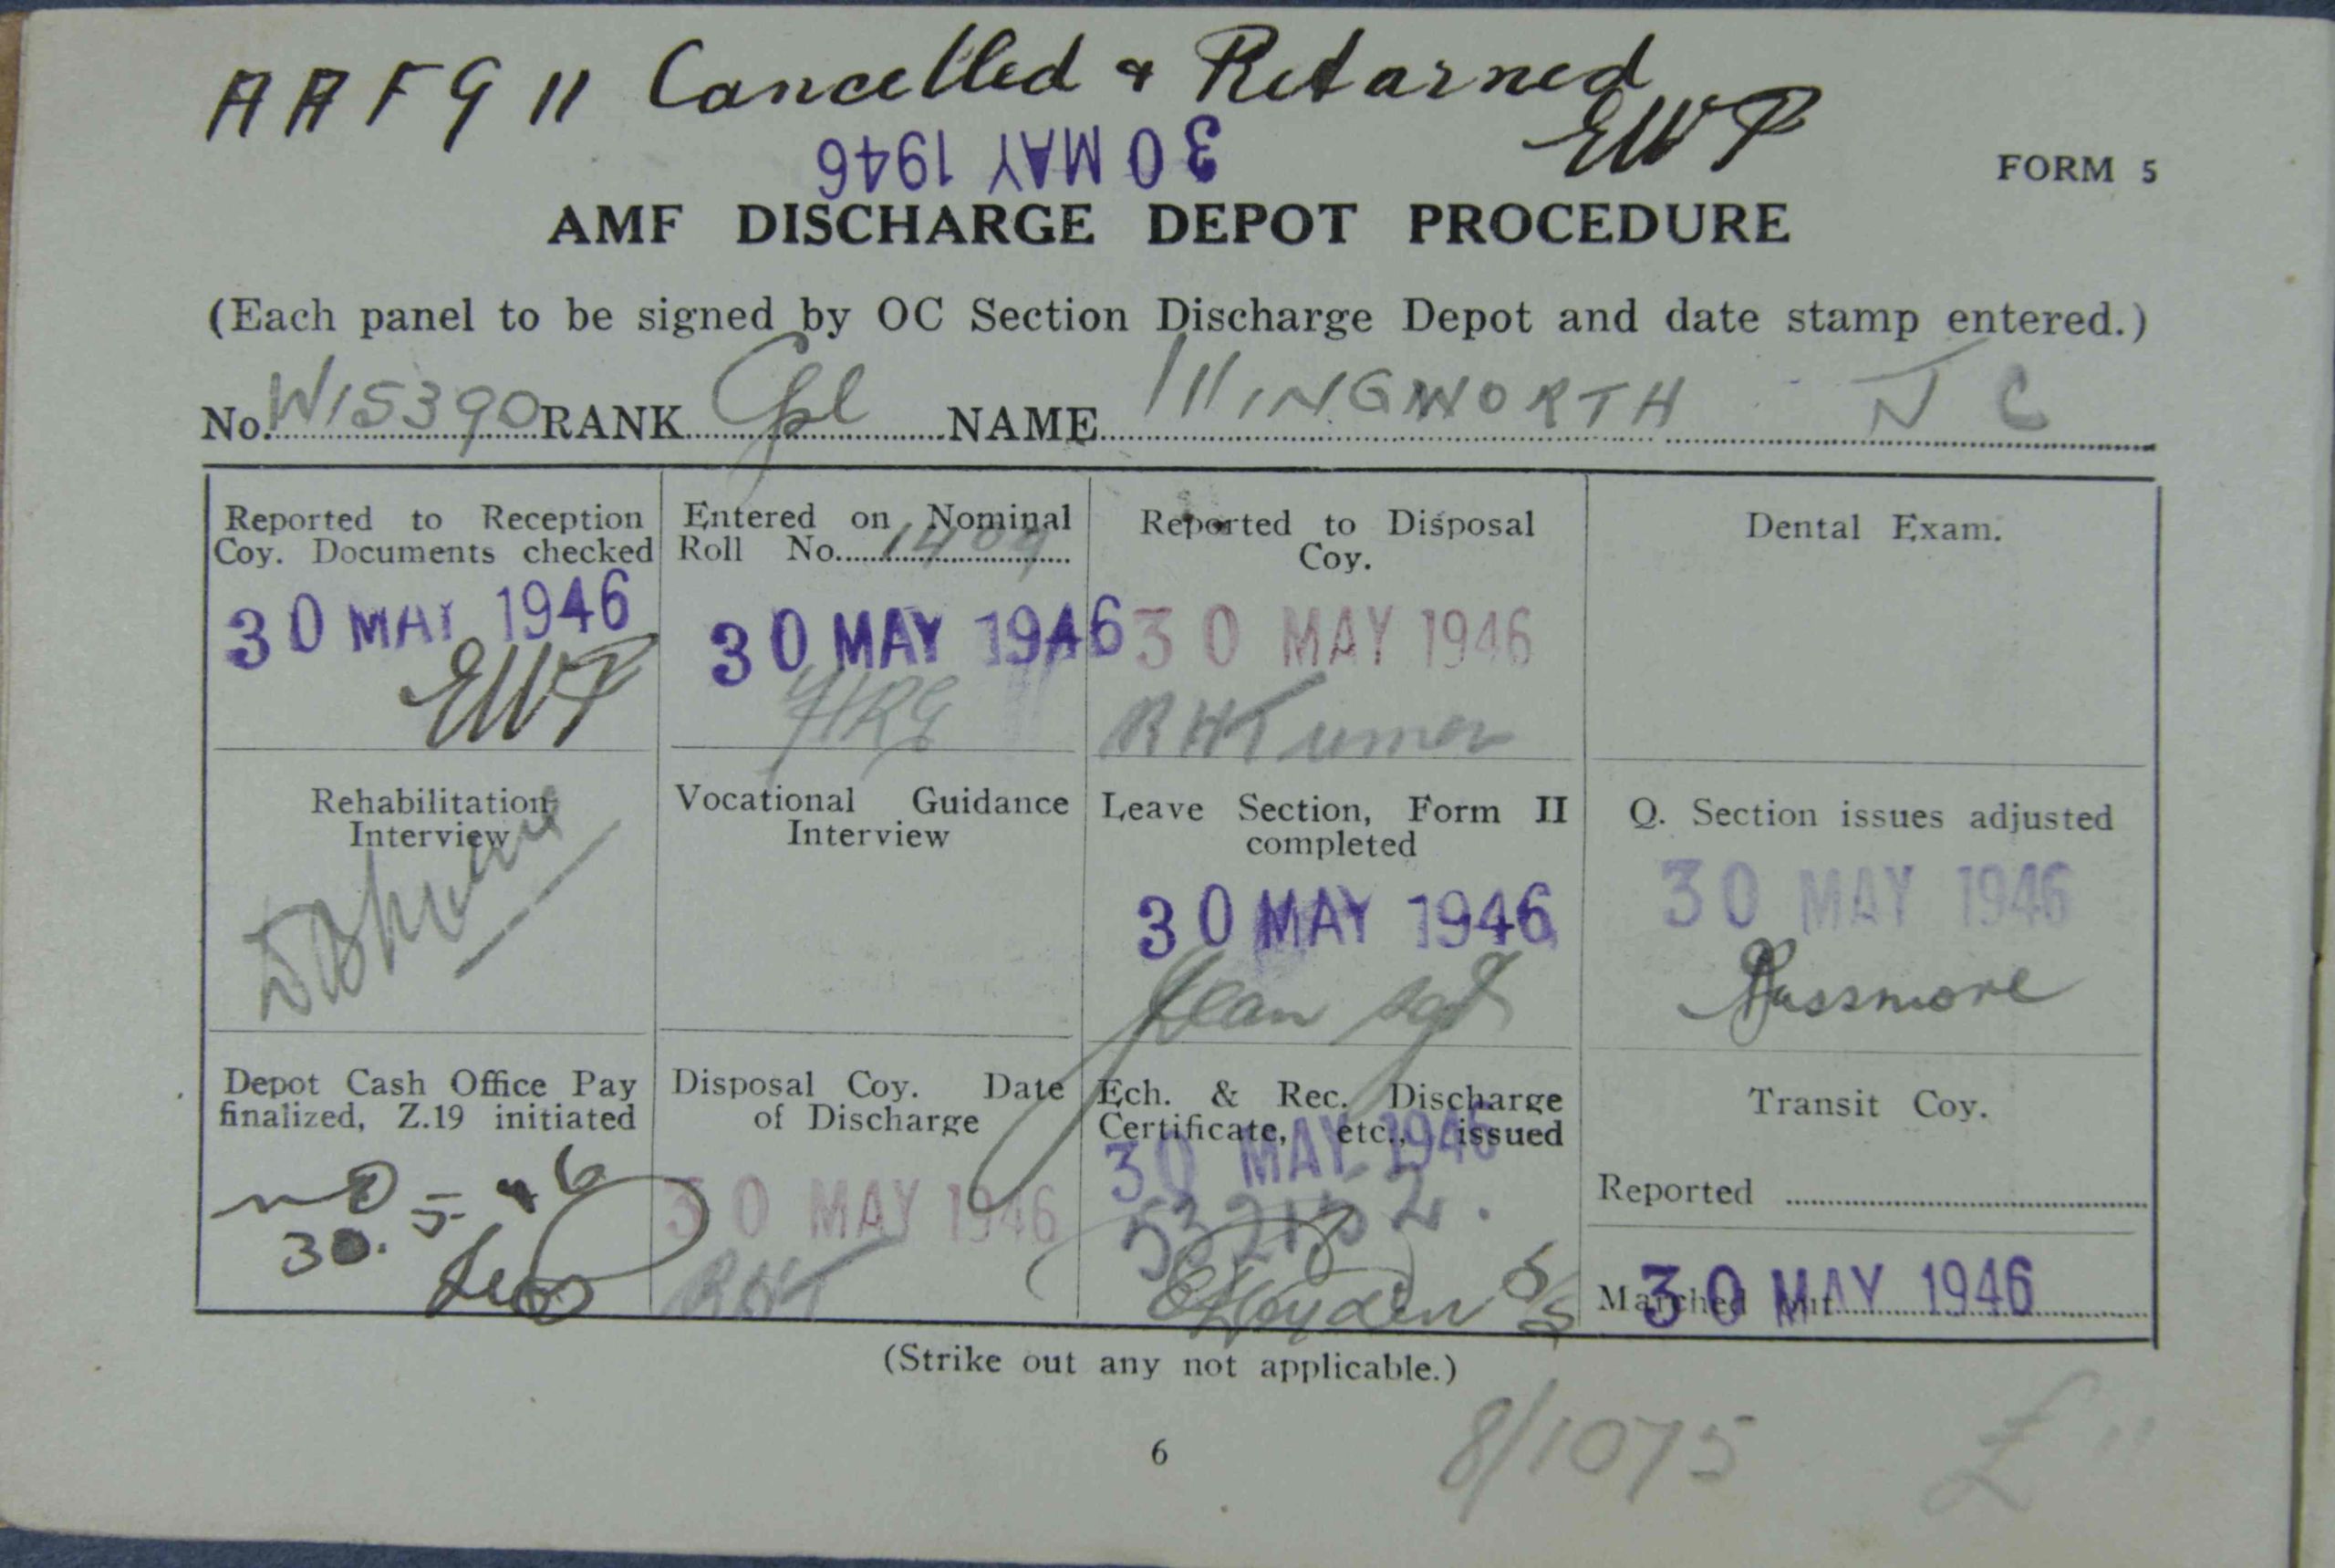 AAF G 11 Cancelled & Returned
EWP
30 MAY 1946
FORM 5
AMF DISCHARGE DEPOT PROCEDURE
(Each panel to be signed by OC Section Discharge Depot and date stamp entered.)
No. W15390 RANK Cpl NAME IllINGWORTH J C
Reported to Reception
Coy. Documents checked
30 MAY 1946
EWP
Entered on Nominal
Roll No. 1409
30 MAY 1946
Reported to Disposal
Coy.
30 MAY 1946
RHTurner
Dental Exam.
Rehabilitation
Interview
Vocational Guidance
Interview
Leave Section, Form II
completed
30 MAY 1946
Jean Sgt
Q. Section issues adjusted
30 MAY 1946
Passmore
Depot Cash Office Pay
finalized, Z.19 initiated
30.5.46
Disposal Coy. Date
of Discharge
30 MAY 1946
RHT
Ech. & Rec. Discharge
Certificate, etc., issued
30 MAY 1946
Hayden S/S
Transit Coy.
Reported
Marched out
30 MAY 1946
(Strike out any not applicable.)
8/1075
£ "
6